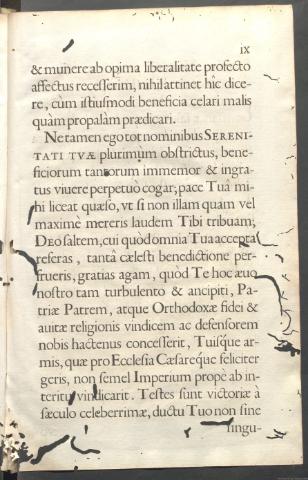 ix
& munere ab opima liberalitate profecto
affectus recesserim, nihil attinet hîc dice-
re, cùm istiusmodi beneficia celari malis
quàm propalàm prædicari.
Ne tamen ego tot nominibus SERENI-
TATI TVÆ plurimùm obstrictus, bene-
ficiorum tantorum immemor & ingra-
tus vivere perpetuo cogar; pace Tuâ mi-
hi liceat quæso, vt si non illam quam vel
maximè mereris laudem Tibi tribuam;
DEO saltem, cui quod omnia Tua accepta
referas, tantâ cælesti benedictione per-
frueris, gratias agam, quòd Te hoc æuo
nostro tam turbulento & ancipiti, Pa-
triæ Patrem, atque Orthodoxæ fidei &
avitæ religionis vindicem ac defensorem
nobis hactenus concesserit, Tuisque ar-
mis, quæ pro Ecclesia Cæsareque feliciter
geris, non semel Imperium propè ab in-
teritu vindicarit. Testes sunt victoriæ à
sæculo celeberrimæ, ductu Tuo non sine
singu-